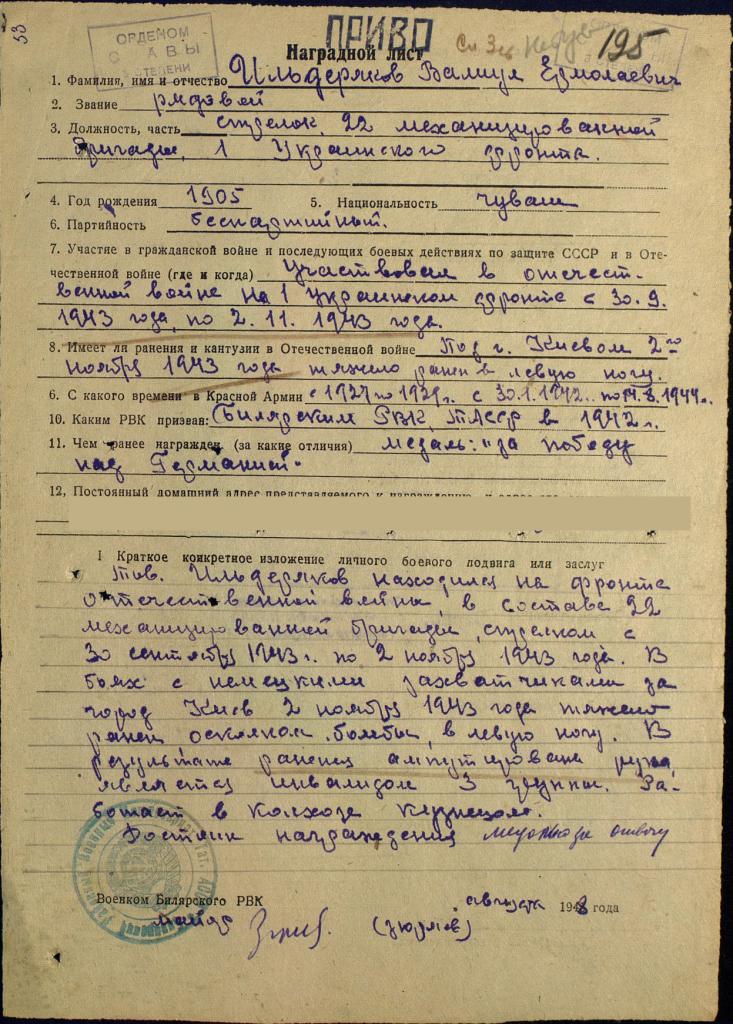 53
ОРДЕНОМ
С АВЫ
СТЕПЕНИ
ПРИВО
195
Наградной лист
1. Фамилия, имя и отчество Ильдеряков Ермолаевич
2. Звание рядовой
3. Должность, часть стрелок, 22 механизированной
бригады, 1 Украинского фронта.
4. Год рождения 1905 5. Национальность чуваш
6. Партийность беспартийный.
7. Участие в гражданской войне и последующих боевых действиях по защите СССР и в Оте-
чественной войне (где и когда) участвовал в отечест-
венной войне на 1 Украинском фронте с 30.9.
1943 года, по 2. 11. 1943 года.
8. Имеет ли ранения и кантузии в Отечественной войне Под г. Киевом 2го
ноября 1943 года тяжело ранен в левую ногу.
6. С какого времени в Красной Армии с 1927 по 1929г. с 30.1.1942. по 14.8.1944г.
10. Каким РВК призван: Билярским РВК, ТАССР в 1942 г.
11. Чем ранее награжден (за какие отличия) медаль: "за победу
над Германией"
12, Постоянный домашний адрес представляемого к награждению и адрес его
I Краткое конкретное изложение личного боевого подвига или заслуг
Тов. Ильдеряков находился на фронте
отечественной войны, в составе 22
механизированной бригады, стрелком с
30 сентября 1943г. по 2 ноября 1943 года. В
боях с немецкими захватчиками за
город Киев 2 ноября 1943 года тяжело
ранен осколком бомбы, в левую ногу. В
результате ранения ампутирована
является инвалидом 3 группы. Ра-
ботает в колхозе кузнецом.
Достоин награждения медалью за отвагу
Военком Билярского РВК августа 1948 года
майор (Зюрлов)